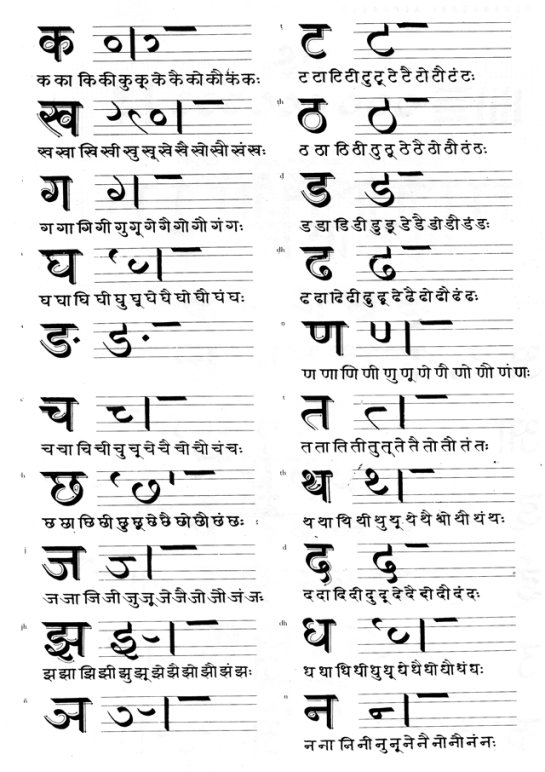 क
क का कि की कु कू के कै को कौ कं कः
ख
ख खा खि खी खु खू खे खै खो खौ खं खः
ग
ग गा गि गी गु गू गे गै गो गौ गं गः
घ
घ घा घि घी घु घू घे घै घो घौ घं घः
ङ
च
च चा चि ची चु चू चे चै चो चौ चं चः
छ
छ छा छि छी छु छू छे छै छो छौ छं छः
j ज
ज जा जि जी जु जू जे जै जो जौ जं जः
jh झ
झ झा झि झी झु झू झे झै झो झौ झं झः
ञ
ट
ट टा टि टी टु टू टे टै टो टौ टं टः
ठ
ठ ठा ठि ठी ठु ठू ठे ठै ठो ठौ ठं ठः
ड
ड डा डि डी डु डू डे डै डो डौ डं डः
ढ
ढ ढा ढि ढी ढु ढू ढे ढै ढो ढौ ढं ढः
ण
ण णा णि णी णु णू णे णै णो णौ णं णः
t त
त ता ति ती तु तू ते तै तो तौ तं तः
th थ
थ था थि थी थु थू थे थै थो थौ थं थः
d द
द दा दि दी दु दू दे दै दो दौ दं दः
dh ध
ध धा धि धी धु धू धे धै धो धौ धं धः
n न
न ना नि नी नु नू ने नै नो नौ नं नः